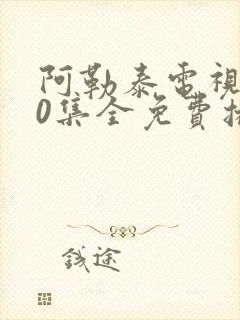 阿勒泰電視
0集全免費
錢途